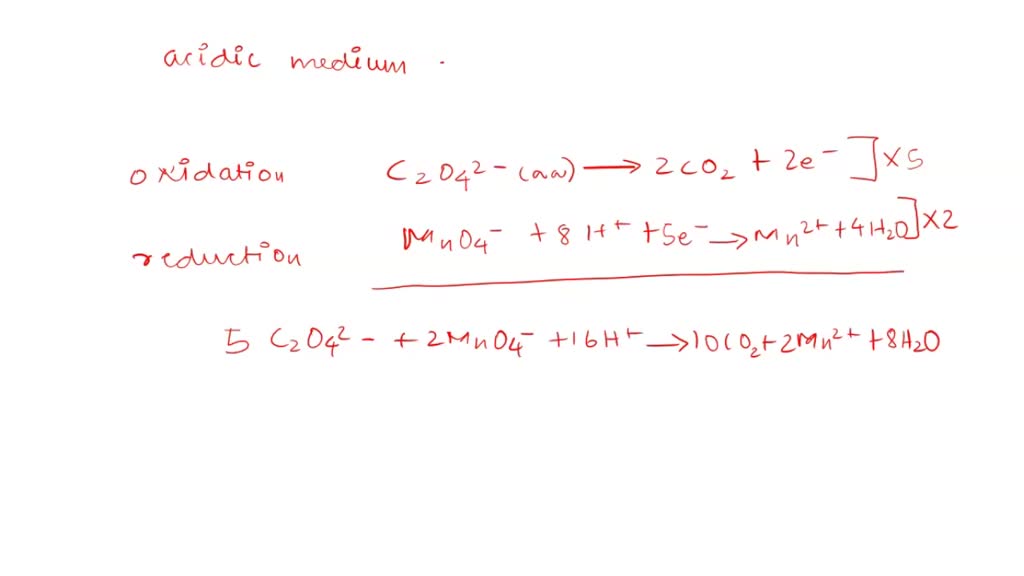 acidic medium .
oxidation C₂O₄²⁻ (aq) ⟶ 2CO₂ + 2e⁻ ] ×5
reduction MnO₄⁻ + 8H⁺ + 5e⁻ ⟶ Mn²⁺ + 4H₂O ] ×2
5 C₂O₄²⁻ + 2MnO₄⁻ + 16H⁺ ⟶ 10CO₂ + 2Mn²⁺ + 8H₂O